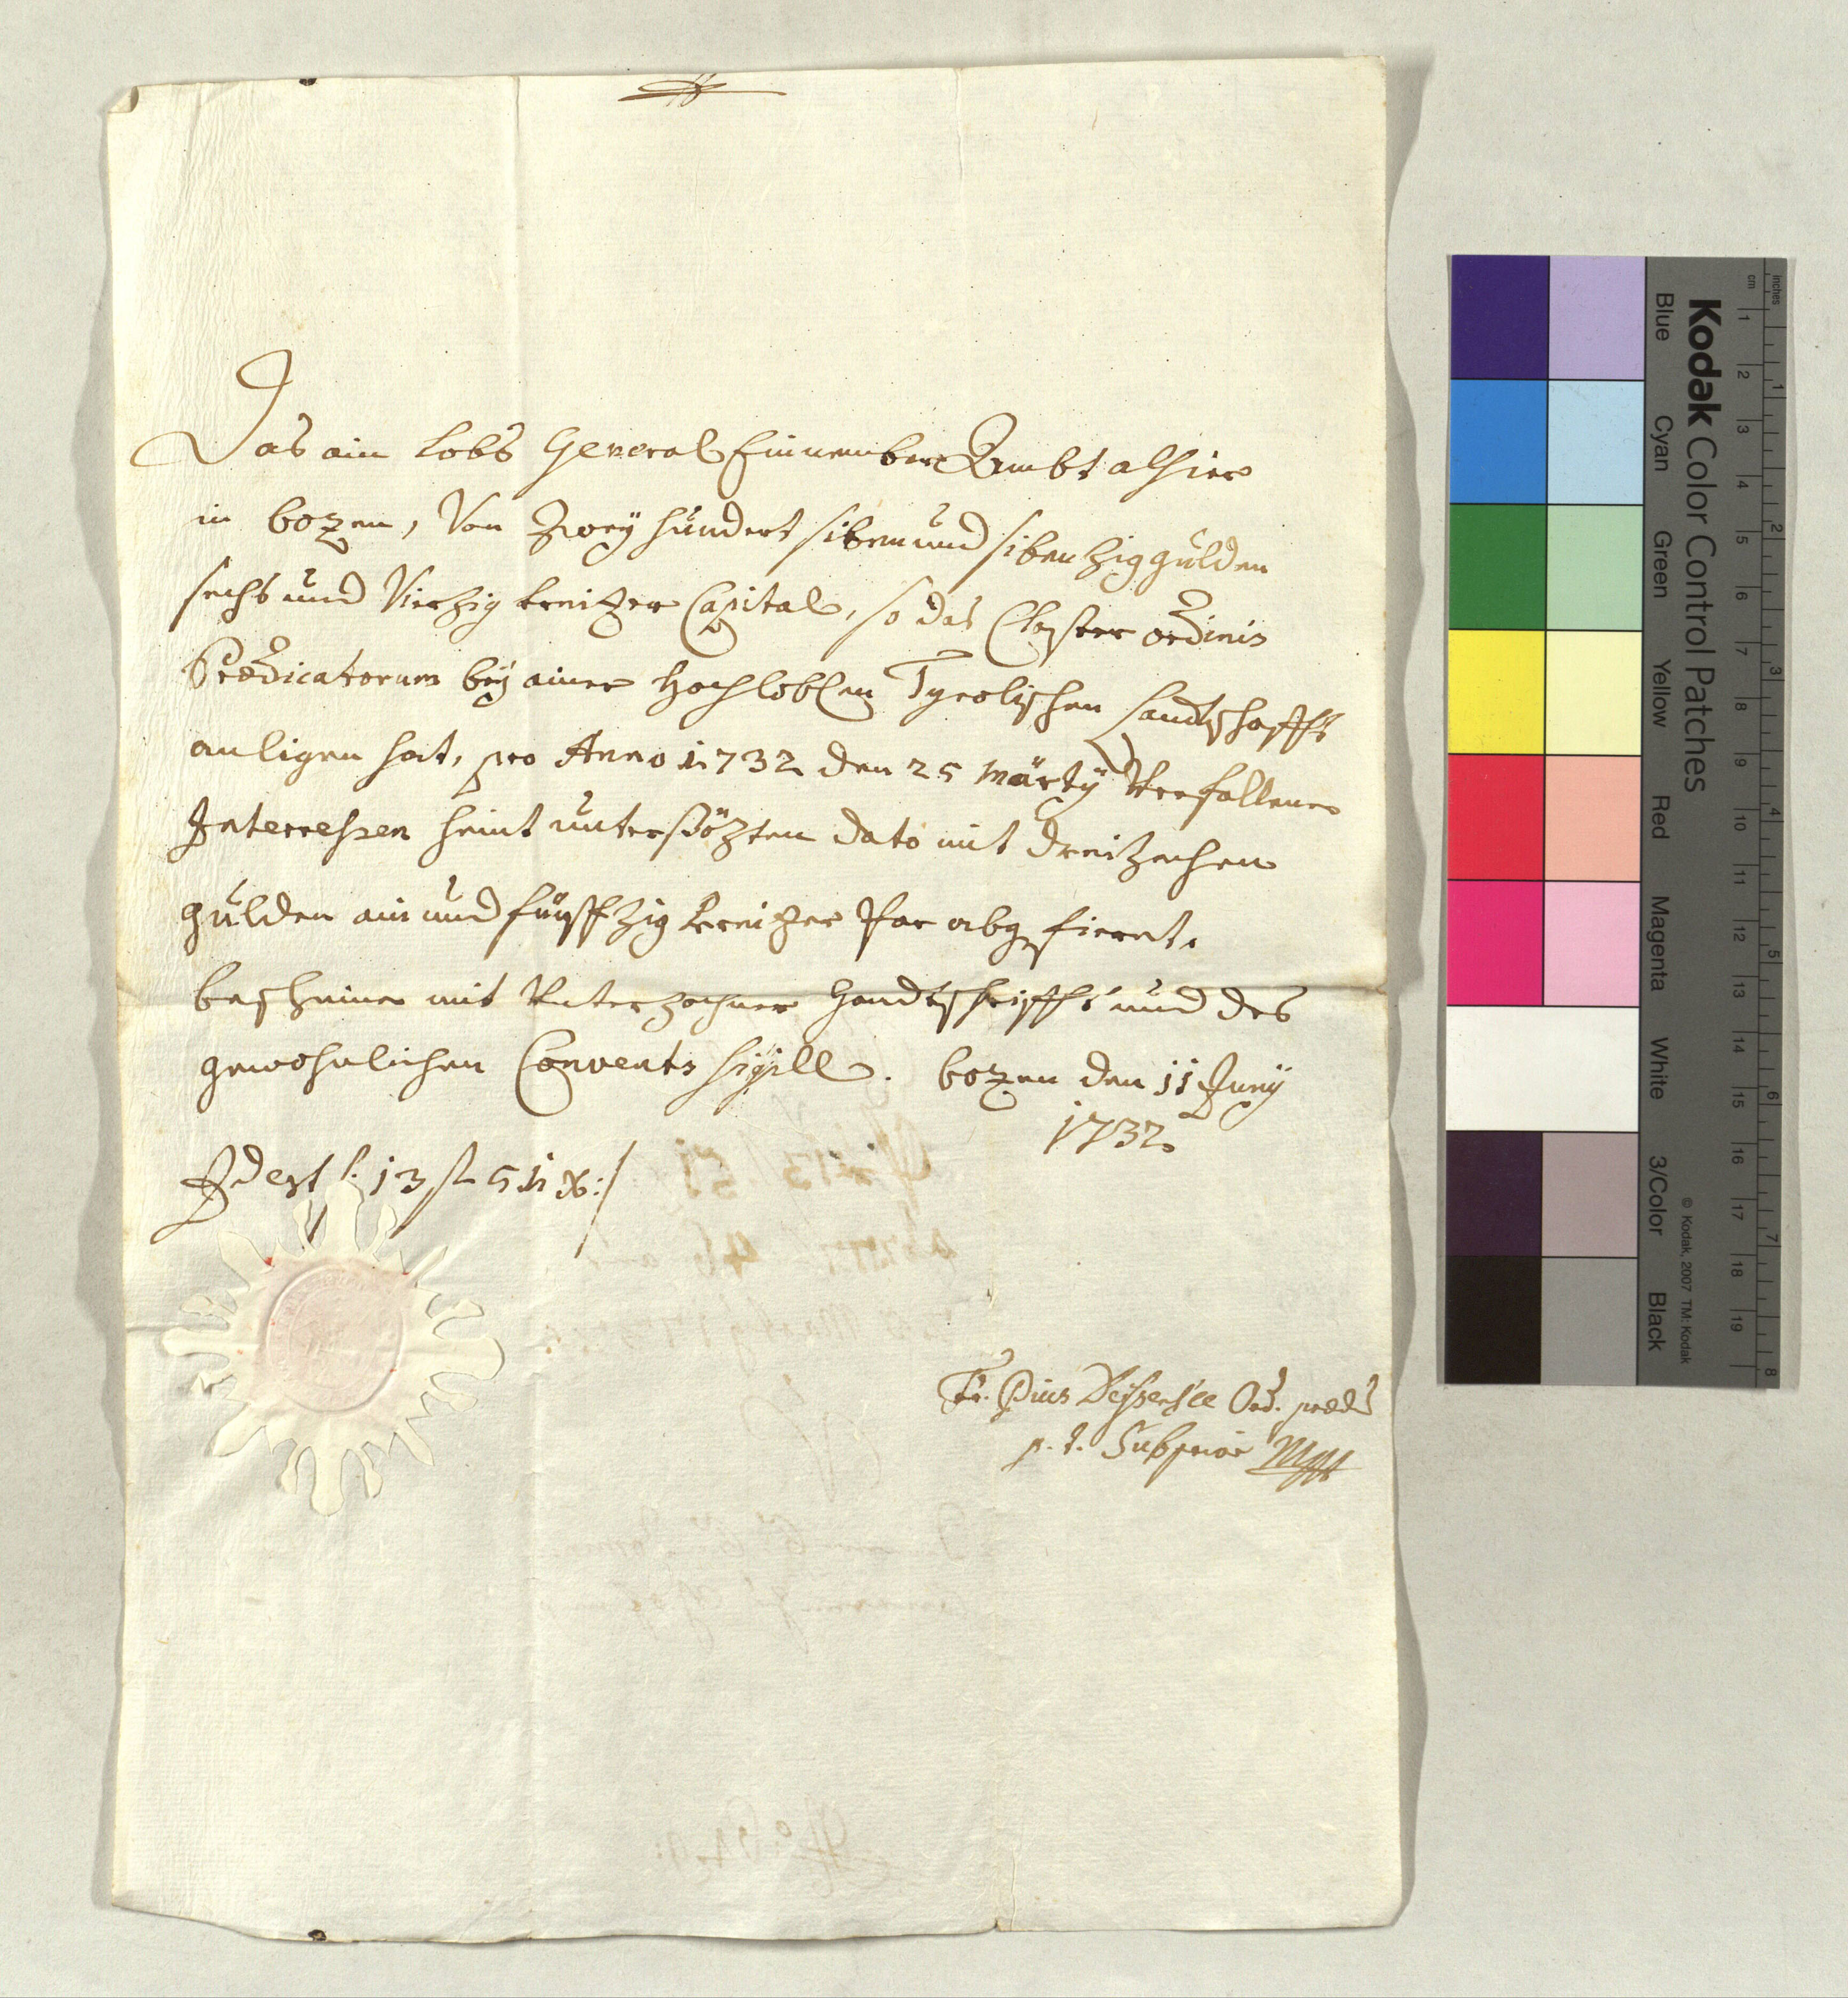 Das ain Lobs General Einnember Ambt alhier
in bozen, Von Zwey hundert siben und sibenzig gulden
sechs und Vierzig kreitzer Capital, so das Closter ordinis
Prædicatorum bey ainer Hochloblen Tyrolischen Landtschafft
anligen hat, pro Anno 1732 den 25 Märtÿ Verfallene
Interessen heint untersözten dato mit dreizechen
gulden ain und fünffzig kreitzer Par abgefieret,
bescheine mit Unterzochner Handtschrifft und des
gewohnlichen Convents Sigill. bozen den 11 Junÿ
1732
Id est l. 13 fl 51 x:/
Fr. Pius Ord. præd:
p. t. Subprior Mpp
Kodak Color Control Patches
Blue Cyan Green Yellow Red Magenta White 3/Color Black
© Kodak, 2007 TM: Kodak
inches 1 2 3 4 5 6 7 8
cm 1 2 3 4 5 6 7 8 9 10 11 12 13 14 15 16 17 18 19